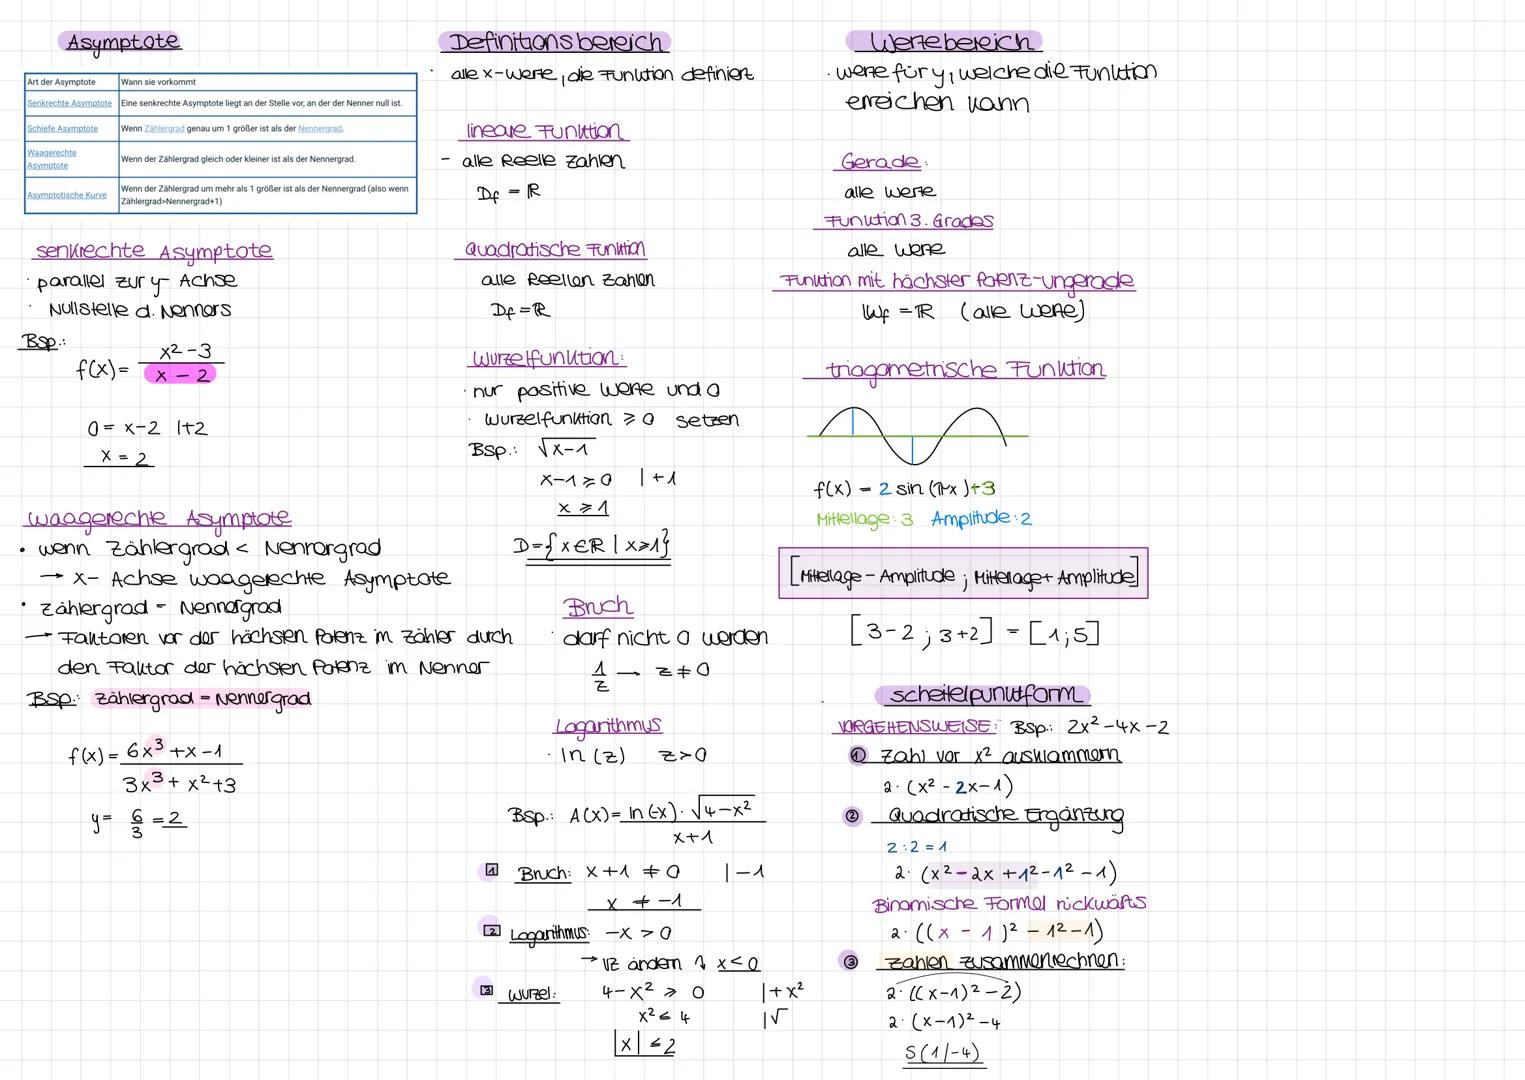 Asymptote
Art der Asymptote Wann sie vorkommt
Senkrechte Asymptote Eine senkrechte Asymptote liegt an der Stelle vor, an der der Nenner null ist.
Schiefe Asymptote Wenn Zählergrad genau um 1 größer ist als der Nennergrad.
Waagerechte Asymptote Wenn der Zählergrad gleich oder kleiner ist als der Nennergrad.
Asymptotische Kurve Wenn der Zählergrad um mehr als 1 größer ist als der Nennergrad (also wenn Zählergrad>Nennergrad+1)
senkrechte Asymptote
· parallel zur y- Achse
· Nullstelle d. Nenners
Bsp.:
f(x) = x² - 3 / x - 2
0 = x-2 |+2
x = 2
waagerechte Asymptote
• wenn Zählergrad < Nennergrad
→ x- Achse waagerechte Asymptote
• Zählergrad = Nennergrad
→ Faktoren vor der höchsten Potenz im Zähler durch
den Faktor der höchsten Potenz im Nenner
Bsp.: Zählergrad = Nennergrad
f(x) = 6x³ + x - 1 / 3x³ + x² + 3
y = 6/3 = 2
Definitionsbereich
· alle x-Werte, die Funktion definiert
lineare Funktion
- alle Reelle Zahlen
Df = ℝ
Quadratische Funktion
alle Reellen Zahlen
Df = ℝ
Wurzelfunktion:
· nur positive Werte und 0
· Wurzelfunktion ≥ 0 setzen
Bsp.: √x-1
x-1 ≥ 0 | +1
x ≥ 1
D = { x ∈ ℝ | x ≥ 1 }
Bruch
· darf nicht 0 werden
1/z → z ≠ 0
Logarithmus
· ln (z) z > 0
Bsp.: A(x) = ln(-x) · √4-x² / x+1
1 Bruch: x+1 ≠ 0 | -1
x ≠ -1
2 Logarithmus: -x > 0
→ VZ ändern x < 0
3 Wurzel: 4-x² ≥ 0 | + x²
x² ≤ 4 | √
|x| ≤ 2
Wertebereich
· Werte für y, welche die Funktion
erreichen kann
Gerade:
alle Werte
Funktion 3. Grades
alle Werte
Funktion mit höchster Potenz-ungerade
Wf = ℝ (alle Werte)
triogometrische Funktion
f(x) = 2 sin (πx) +3
Mittellage: 3 Amplitude: 2
[Mittellage - Amplitude ; Mittellage + Amplitude]
[3-2 ; 3+2] = [1;5]
scheitelpunktform
VORGEHENSWEISE: Bsp.: 2x² - 4x - 2
① Zahl vor x² ausklammern
2 · (x² - 2x - 1)
② Quadratische Ergänzung
2 : 2 = 1
2 · (x² - 2x + 1² - 1² - 1)
Binomische Formel rückwärts
2 · ((x - 1)² - 1² - 1)
③ Zahlen zusammenrechnen:
2 · ((x-1)² - 2)
2 · (x-1)² - 4
S(1/-4)